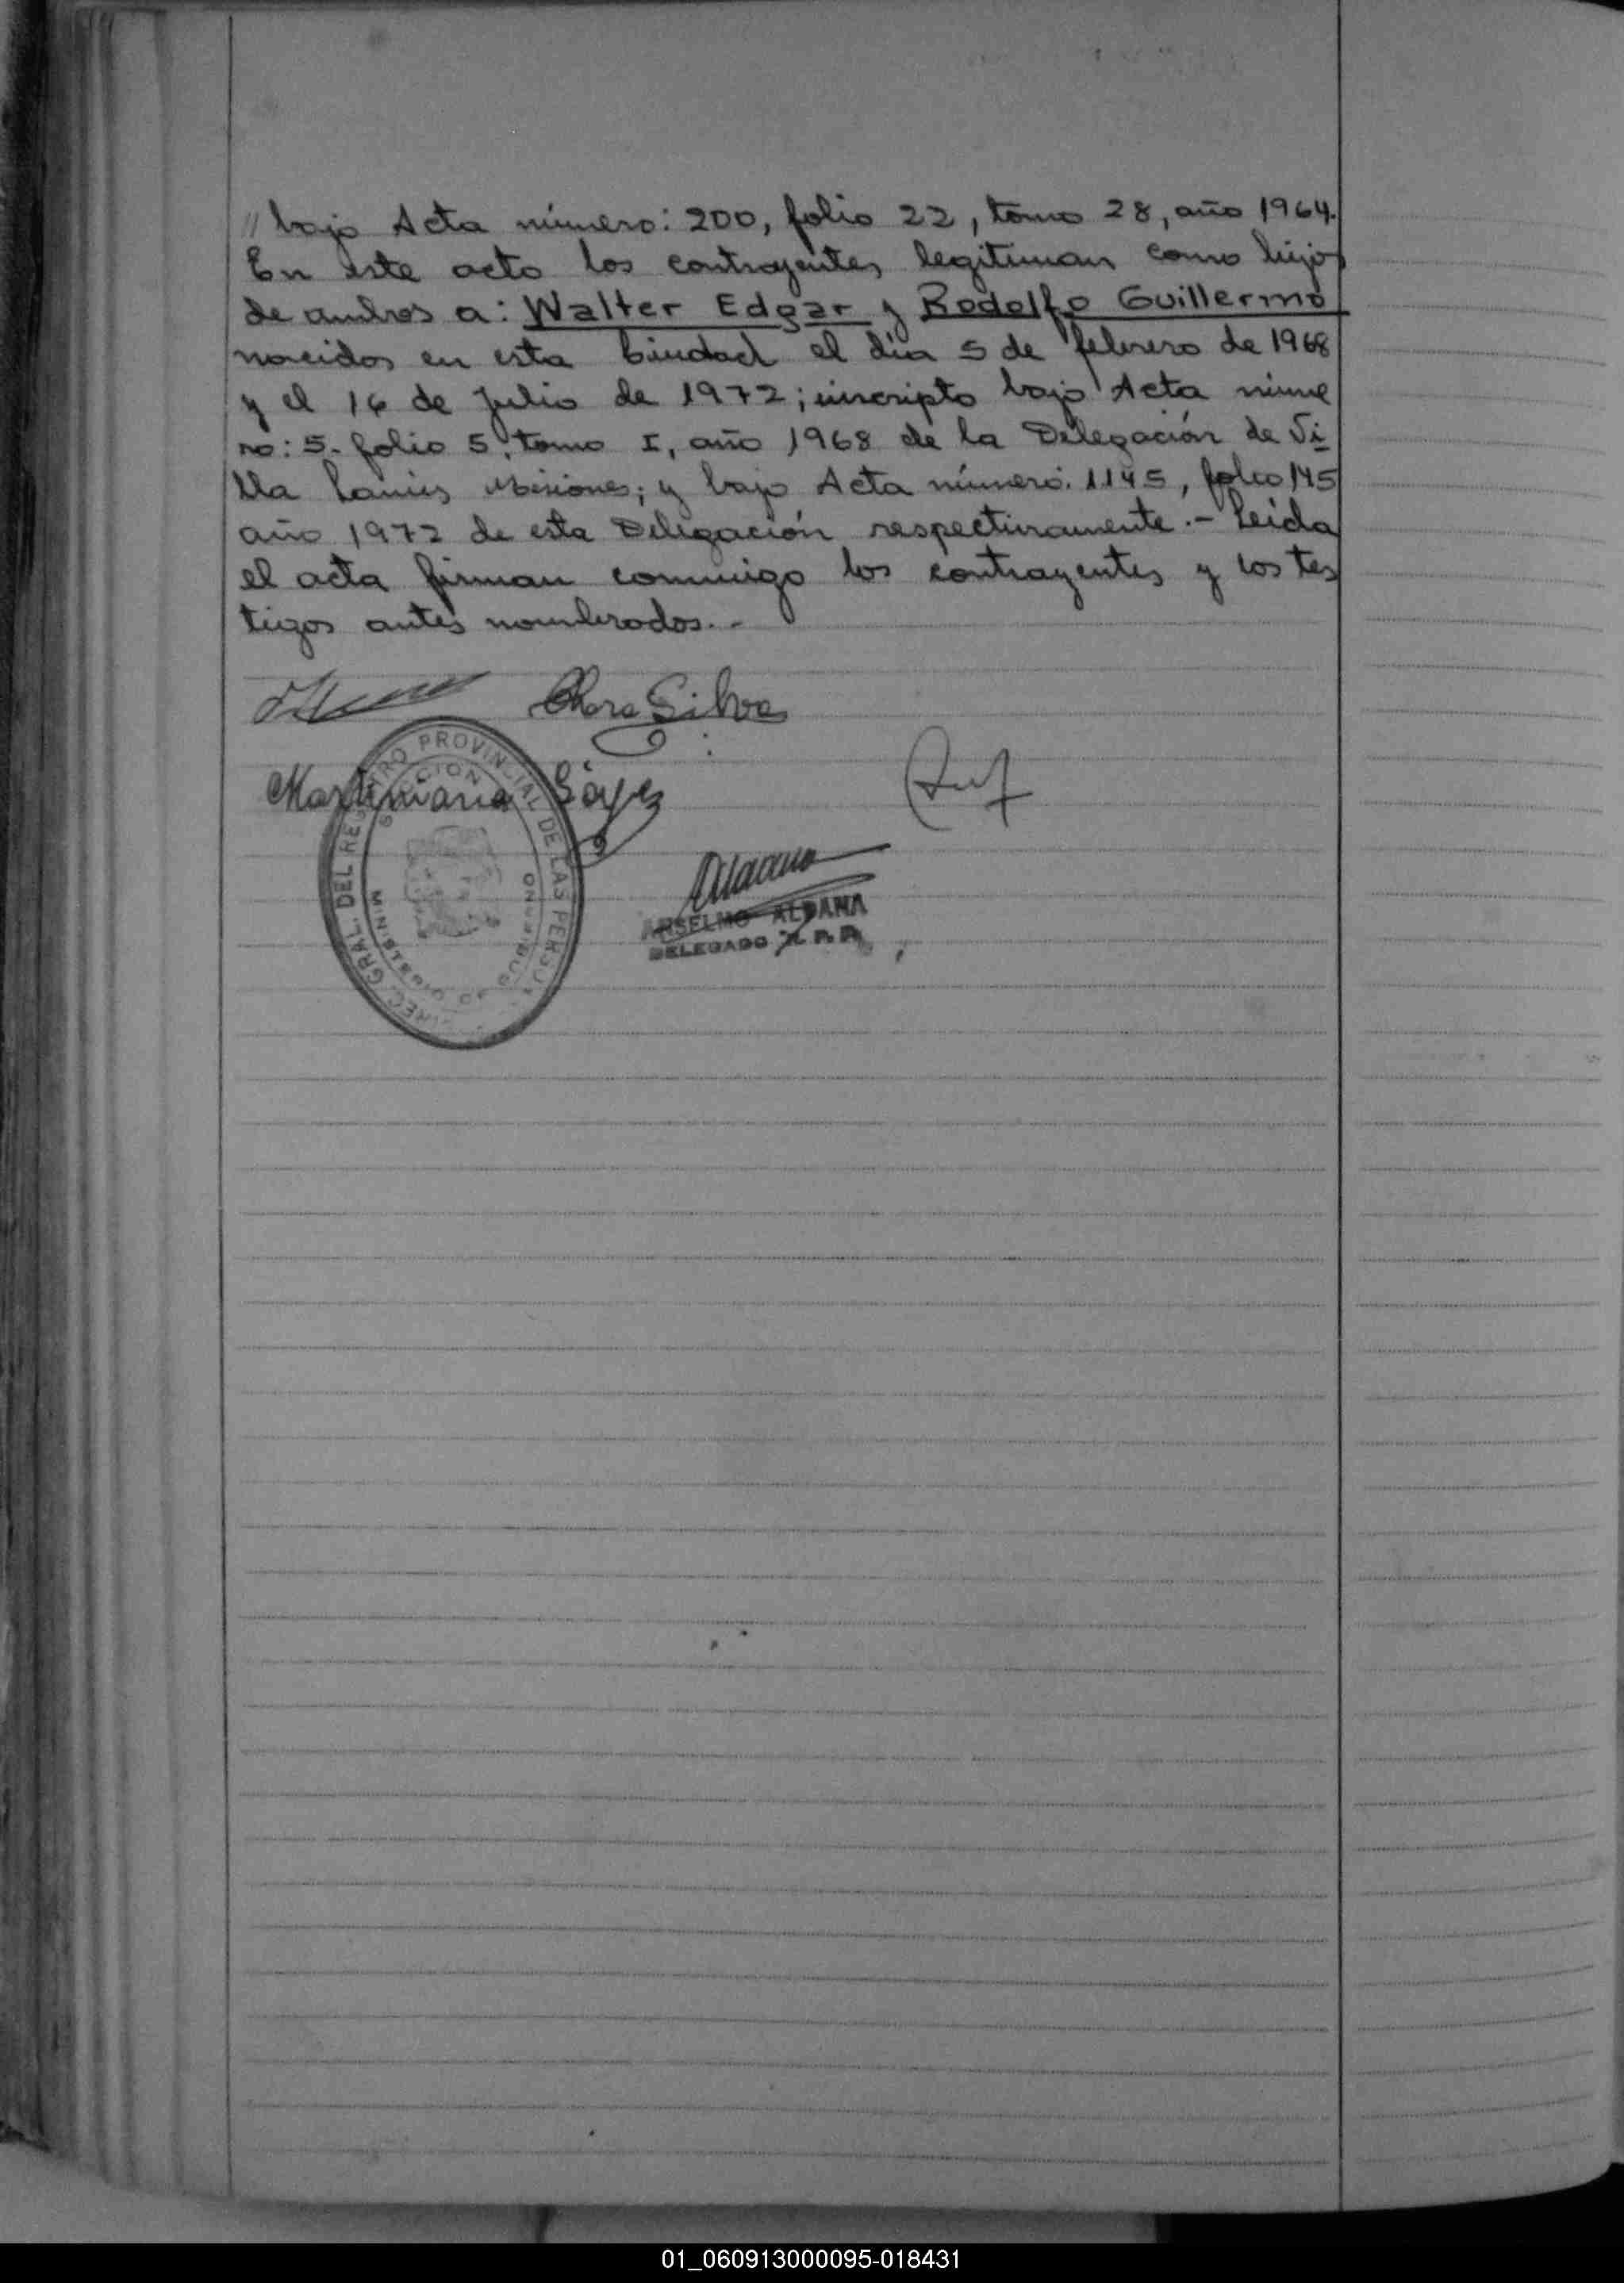 // bajo Acta número: 200, folio 22, tomo 28, año 1964.
En este acto los contrayentes legitiman como hijos
de ambos a: Walter Edgar y Rodolfo Guillermo
nacidos en esta Ciudad el día 5 de febrero de 1968
y el 16 de Julio de 1972; inscripto bajo Acta núme
ro: 5. folio 5, tomo I, año 1968 de la Delegación de Vi
lla Lanús Misiones; y bajo Acta número: 1145, folio 145
año 1972 de esta Delegación respectivamente.- Leída
el acta firman conmigo los contrayentes y los tes
tigos antes nombrados.-
Silva
Martiniana
DIREC. GRAL. DEL REGISTRO PROVINCIAL DE LAS PERSONAS
MINISTERIO DE GOBIERNO
ANSELMO ALDANA
DELEGADO R. P. P.
01_060913000095-018431